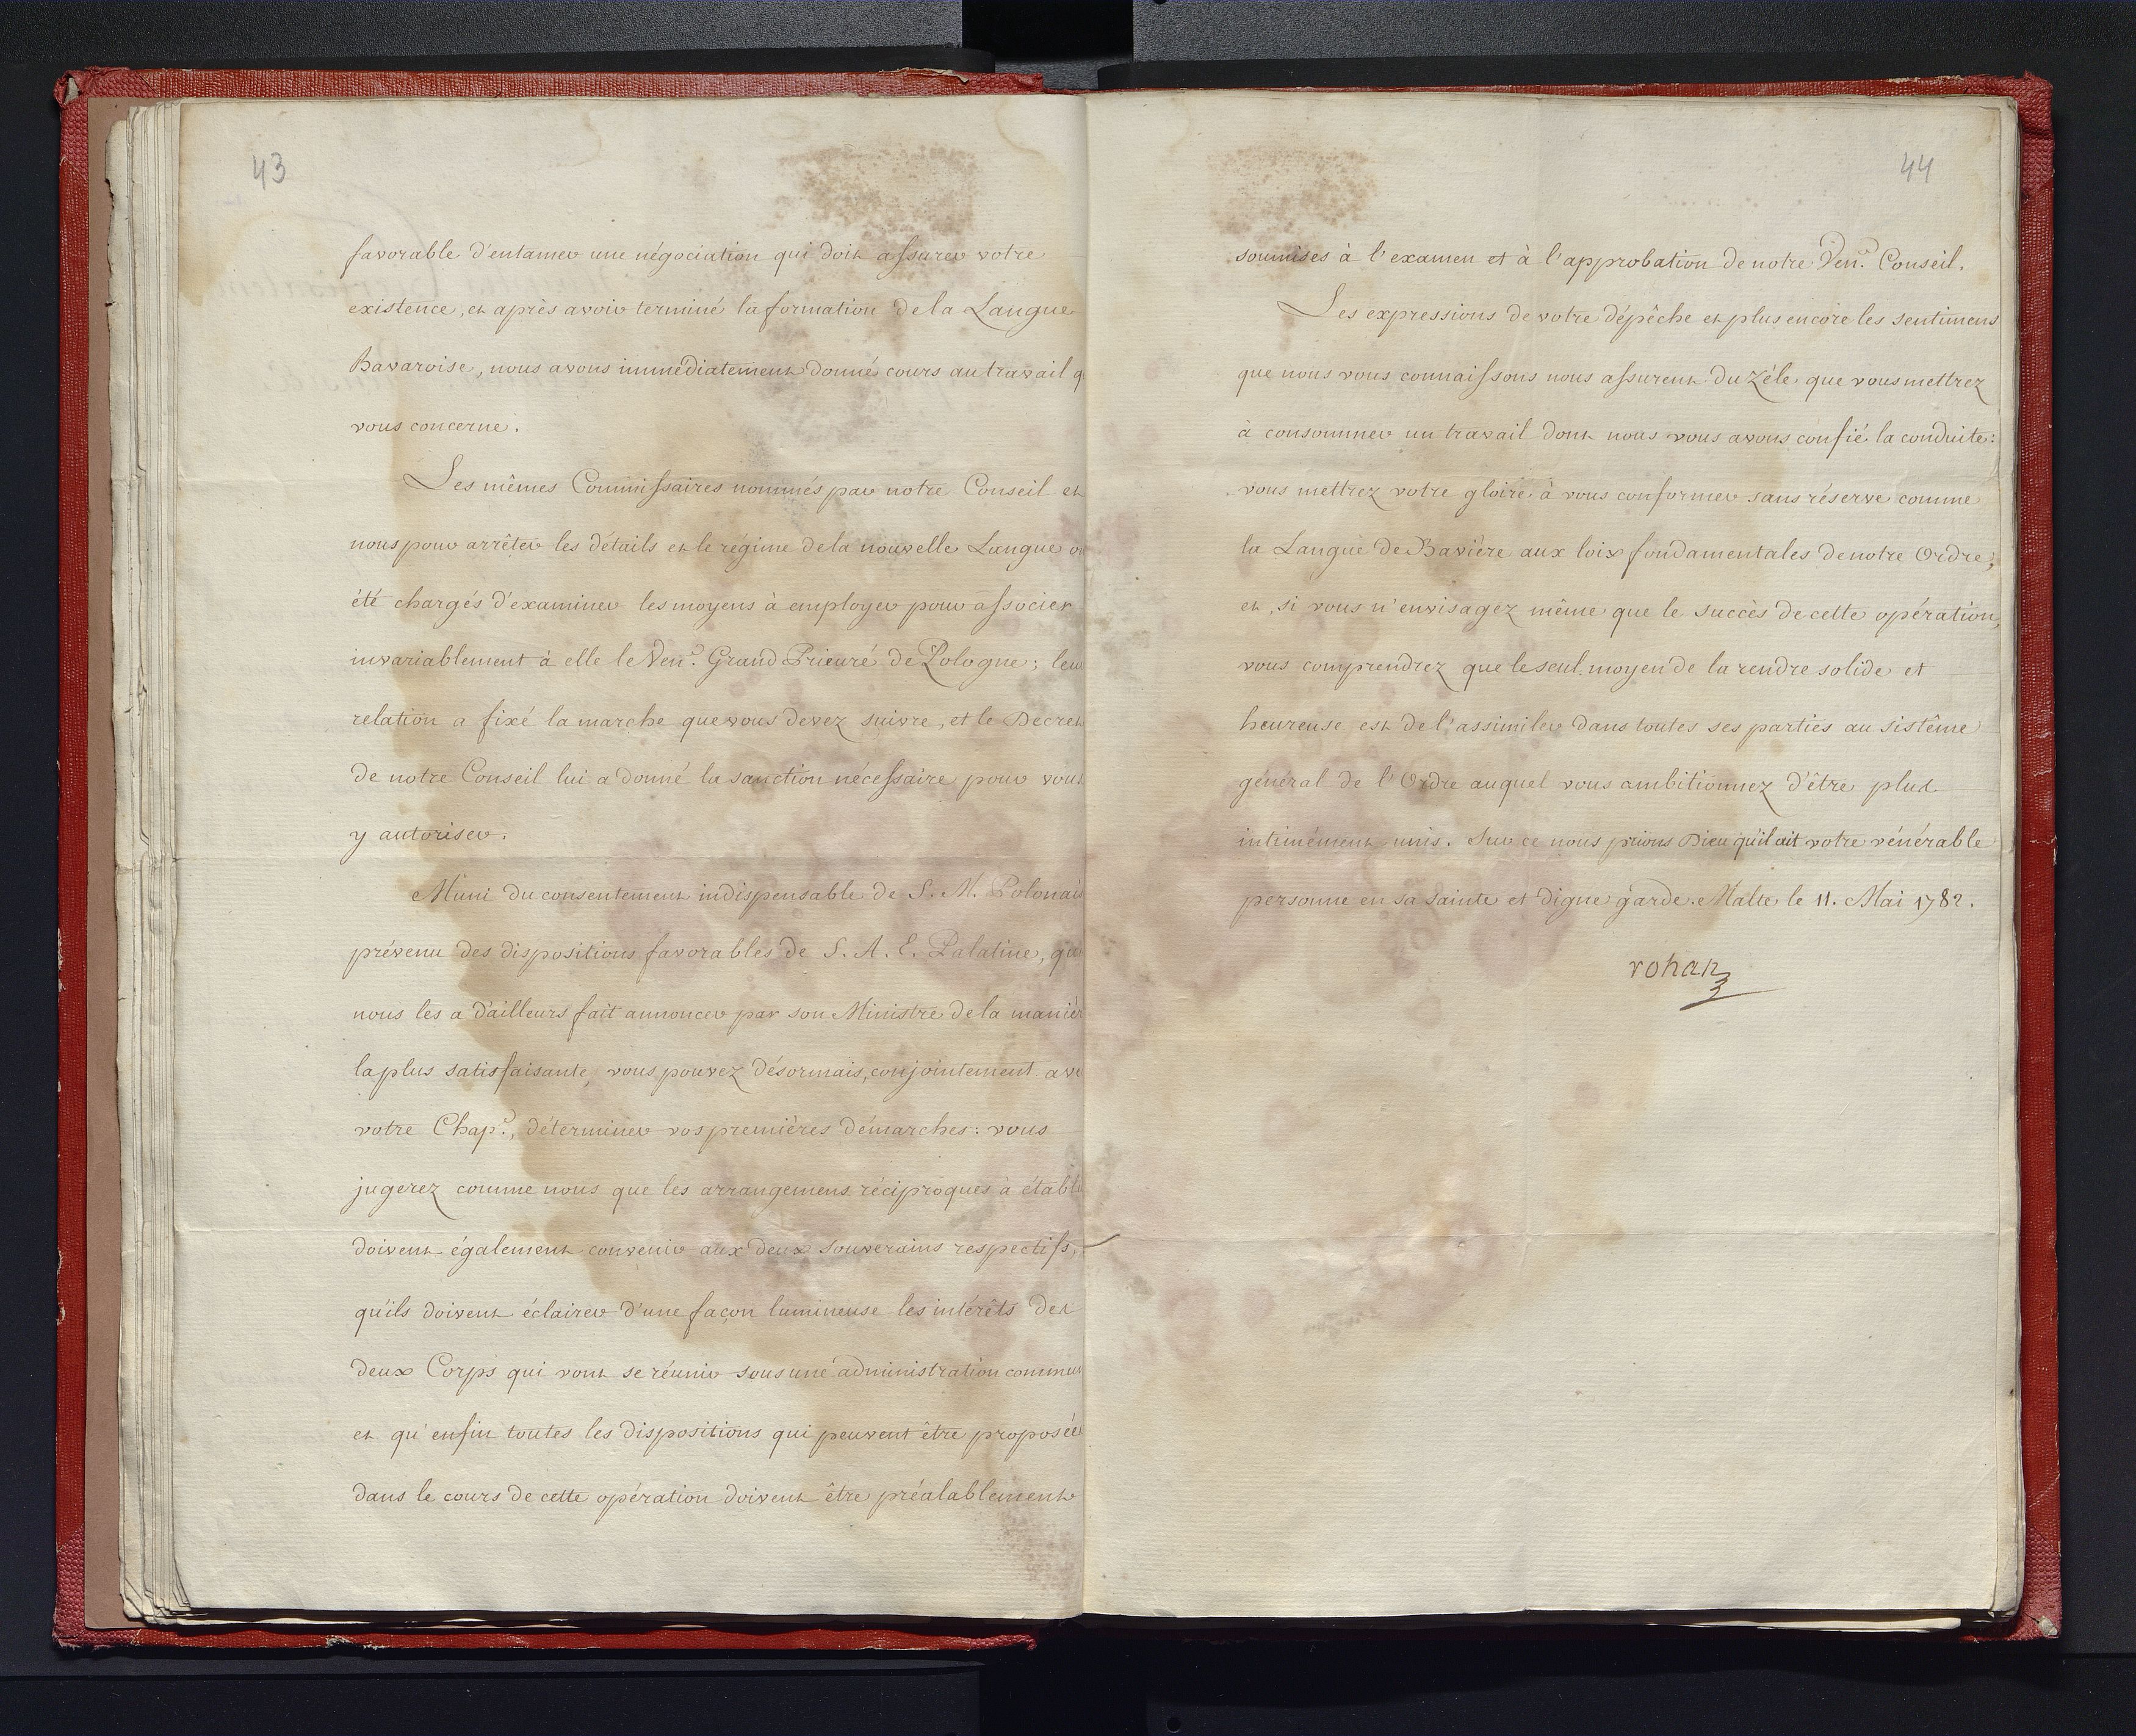 43
favorable d'entamer une négociation qui doit assurer votre
existence, et après avoir terminé la formation de la Langue
Bavaroise, nous avons immédiatement donné cours au travail q
vous concerne.
Les mêmes Commissaires nommés par notre Conseil et
nous pour arrêter les détails et le régime de la nouvelle Langue on
été chargés d'examiner les moyens à employer pour associer
invariablement à elle le Ven.e Grand Prieuré de Pologne; leur
relation a fixé la marche que vous devez suivre, et le Decret
de notre Conseil lui a donné la sanction nécessaire pour vous
y autoriser.
Muni du consentement indispensable de S. M. Polonais
prévenu des dispositions favorables de S. A. E. Palatine, qui
nous les a d'ailleurs fait annoncer par son Ministre de la manièr
la plus satisfaisante, vous pouvez désormais, conjointement ave
votre Chap.e, déterminer vos premières démarches: vous
jugerez comme nous que les arrangemens réciproques à établi
doivent également convenir aux deux souverains respectifs,
qu'ils doivent éclairer d'une façon lumineuse les intérêts des
deux Corps qui vont se réunir sous une administration commun
et qu'enfin toutes les dispositions qui peuvent être proposées
dans le cours de cette opération doivent être préalablement
44
soumises à l'examen et à l'approbation de notre Ven.e Conseil.
Les expressions de votre dépêche et plus encore les sentimens
que nous vous connaissons nous assurent du zéle que vous mettrez
à consommer un travail dont nous vous avons confié la conduite:
vous mettrez votre gloire à vous conformer sans réserve comme
la Langue de Bavière aux loix fondamentales de notre Ordre;
et, si vous n'envisagez même que le succès de cette opération,
vous comprendrez que le seul moyen de la rendre solide et
heureuse est de l'assimiler dans toutes ses parties au sistême
général de l'Ordre auquel vous ambitionnez d'être plus
intimément unis. Sur ce nous prions Dieu qu'il ait votre vénérable
personne en sa sainte et digne garde. Malte le 11. Mai 1782.
rohan